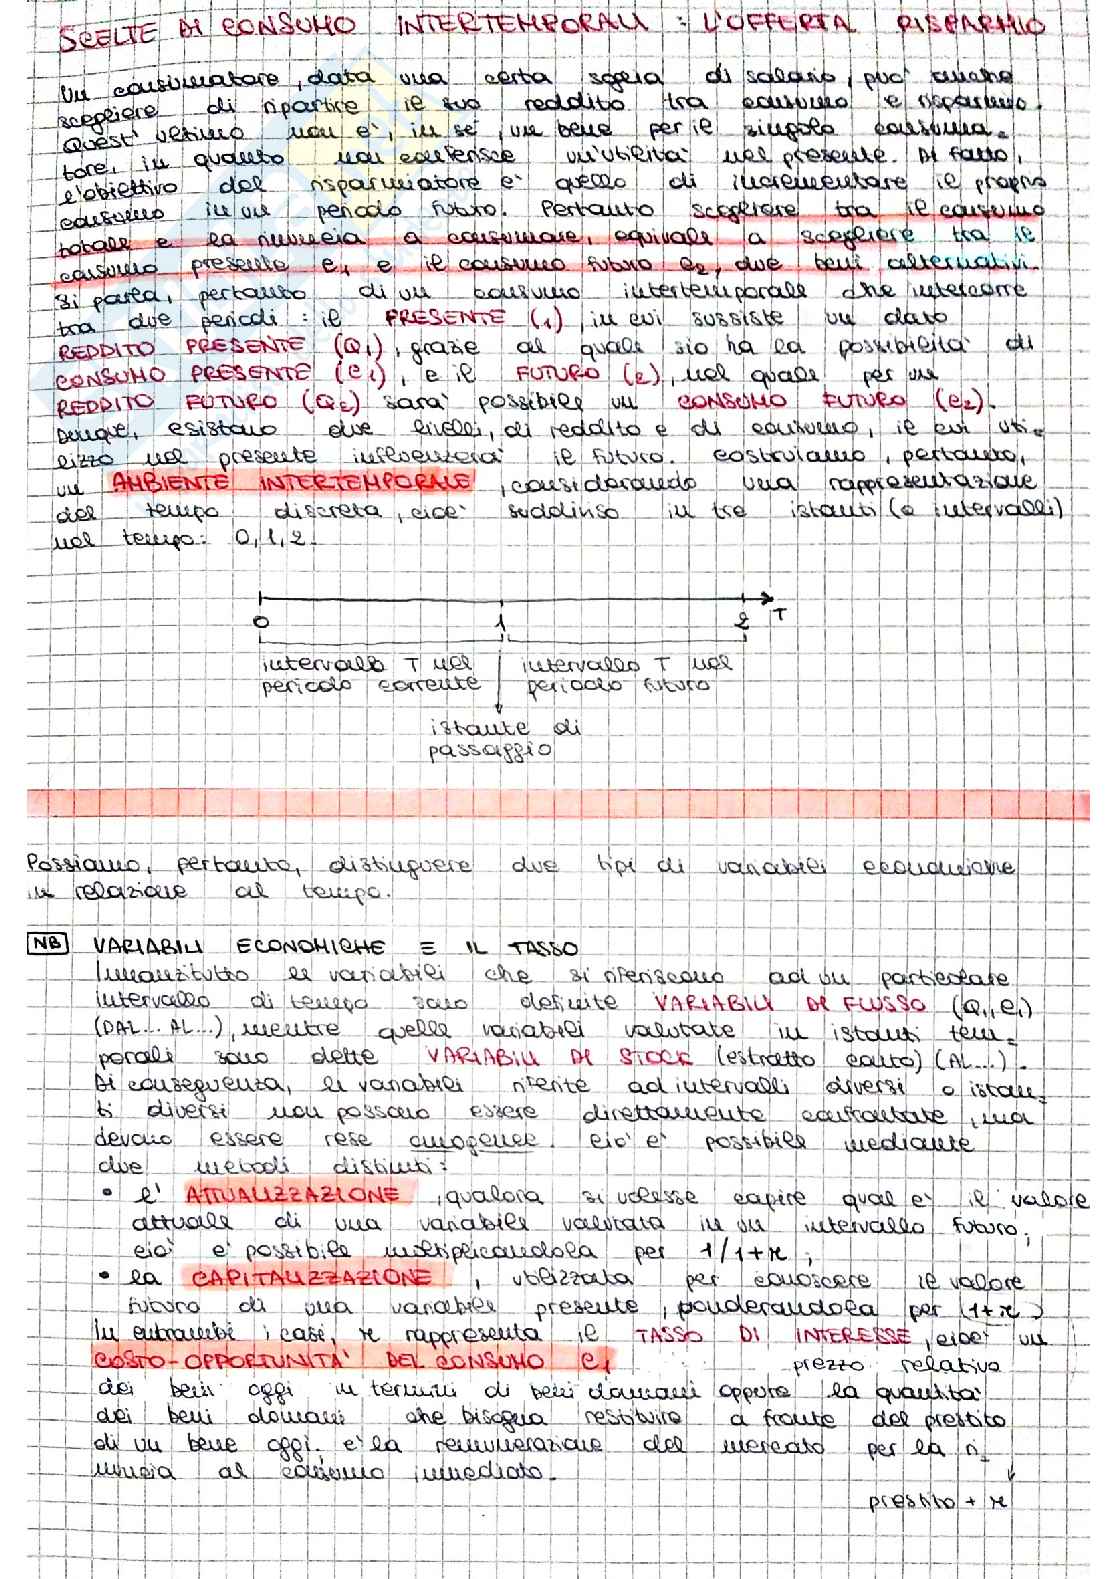 SCELTE DI CONSUMO INTERTEMPORALI : L'OFFERTA RISPARMIO
Un consumatore, data una certa soglia di salario, può anche
scegliere di ripartire il suo reddito tra consumo e risparmio.
Quest'ultimo non è, in sé, un bene per il singolo consuma=
tore, in quanto non conferisce un'utilità nel presente. Di fatto,
l'obiettivo del risparmiatore è quello di incrementare il proprio
consumo in un periodo futuro. Pertanto scegliere tra il consumo
totale e la rinuncia a consumare, equivale a scegliere tra il
consumo presente c1 e il consumo futuro c2, due beni alternativi.
Si parla, pertanto di un consumo intertemporale che intercorre
tra due periodi : il PRESENTE (1), in cui sussiste un dato
REDDITO PRESENTE (Q1), grazie al quale si ha la possibilità di
CONSUMO PRESENTE (C1), e il FUTURO (2), nel quale per un
REDDITO FUTURO (Q2) sarà possibile un CONSUMO FUTURO (C2).
Dunque, esistono due livelli, di reddito e di consumo, il cui uti=
lizzo nel presente influenzerà il futuro. Costruiamo, pertanto,
un AMBIENTE INTERTEMPORALE, considerando una rappresentazione
del tempo discreta, cioè suddiviso in tre istanti (o intervalli)
nel tempo: 0, 1, 2.
0 1 2 T
intervallo T nel intervallo T nel
periodo corrente periodo futuro
istante di
passaggio
Possiamo, pertanto, distinguere due tipi di variabili economiche
in relazione al tempo.
NB VARIABILI ECONOMICHE E IL TASSO
Innanzitutto le variabili che si riferiscono ad un particolare
intervallo di tempo sono definite VARIABILI DI FLUSSO (Q1, C1)
(DAL... AL...), mentre quelle variabili valutate in istanti tem=
porali sono dette VARIABILI DI STOCK (estratto conto) (AL...).
Di conseguenza, le variabili riferite ad intervalli diversi o istan=
ti diversi non possono essere direttamente confrontate, ma
devono essere rese omogenee. Ciò è possibile mediante
due metodi distinti:
• l'ATTUALIZZAZIONE, qualora si volesse capire qual è il valore
attuale di una variabile valutata in un intervallo futuro;
ciò è possibile moltiplicandola per 1/1+r ;
• la CAPITALIZZAZIONE, utilizzata per conoscere il valore
futuro di una variabile presente, ponderandola per (1+r)
In entrambi i casi, r rappresenta il TASSO DI INTERESSE, cioè un
COSTO-OPPORTUNITÀ DEL CONSUMO C1 prezzo relativo
dei beni oggi in termini di beni domani oppure la quantità
dei beni domani che bisogna restituire a fronte del prestito
di un bene oggi. È la remunerazione del mercato per la ri=
nuncia al consumo immediato.
prestito + r